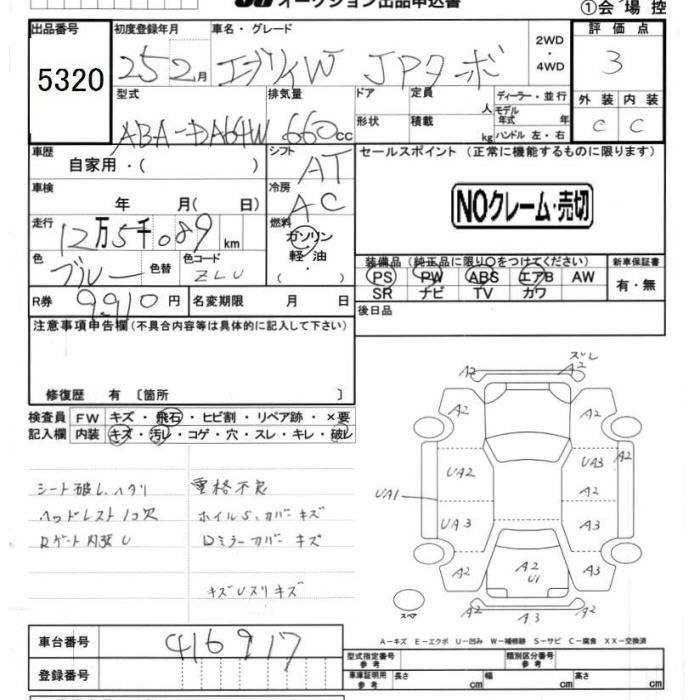 オークション出品申込書
①会場控
出品番号 初度登録年月 車名・グレード 2WD 評価点
5320 25 2月 エブリイW JPターボ ・4WD 3
型式 排気量 ドア 定員 人 ディーラー・並行 外装 内装
ABA-DA64W 660cc 形状 積載 kg モデル年式 年 C C
ハンドル 左・右
車歴 シフト セールスポイント (正常に機能するものに限ります)
自家用・( ) AT
車検 冷房
年 月( 日) AC NOクレーム・売切
走行 燃料
12万5千089km ガソリン
色 色替 色コード 軽・油 装備品 (純正品に限り○をつけてください) 新車保証書
ブルー ZLU ( ) PS PW ABS エアB AW 有・無
SR ナビ TV カワ
R券 9,910円 名変期限 月 日 後日品
注意事項申告欄(不具合内容等は具体的に記入して下さい)
修復歴 有 〔箇所 〕
検査員 FW キズ・飛石・ヒビ割・リペア跡・×要
記入欄 内装 キズ・汚レ・コゲ・穴・スレ・キレ・破レ
シート破レ、ヘタリ 電格不良
ヘッドレスト1コ欠 ホイルS、カバーキズ
Rゲート内張U Dミラーカバーキズ
キズUスリキズ
ズレ
A2 A2
A2 A2
UA2 UA3 A2
UA1 A2
UA3 A3
A2 A2 A3
U1
スペア A2 A3 A2
A-キズ E-エクボ U-凹み W-補修跡 S-サビ C-腐食 XX-交換済
車台番号 416917
登録番号
型式指定番号 参考 類別区分番号 参考
車庫証明用 参考 長さ cm 幅 cm 高さ cm